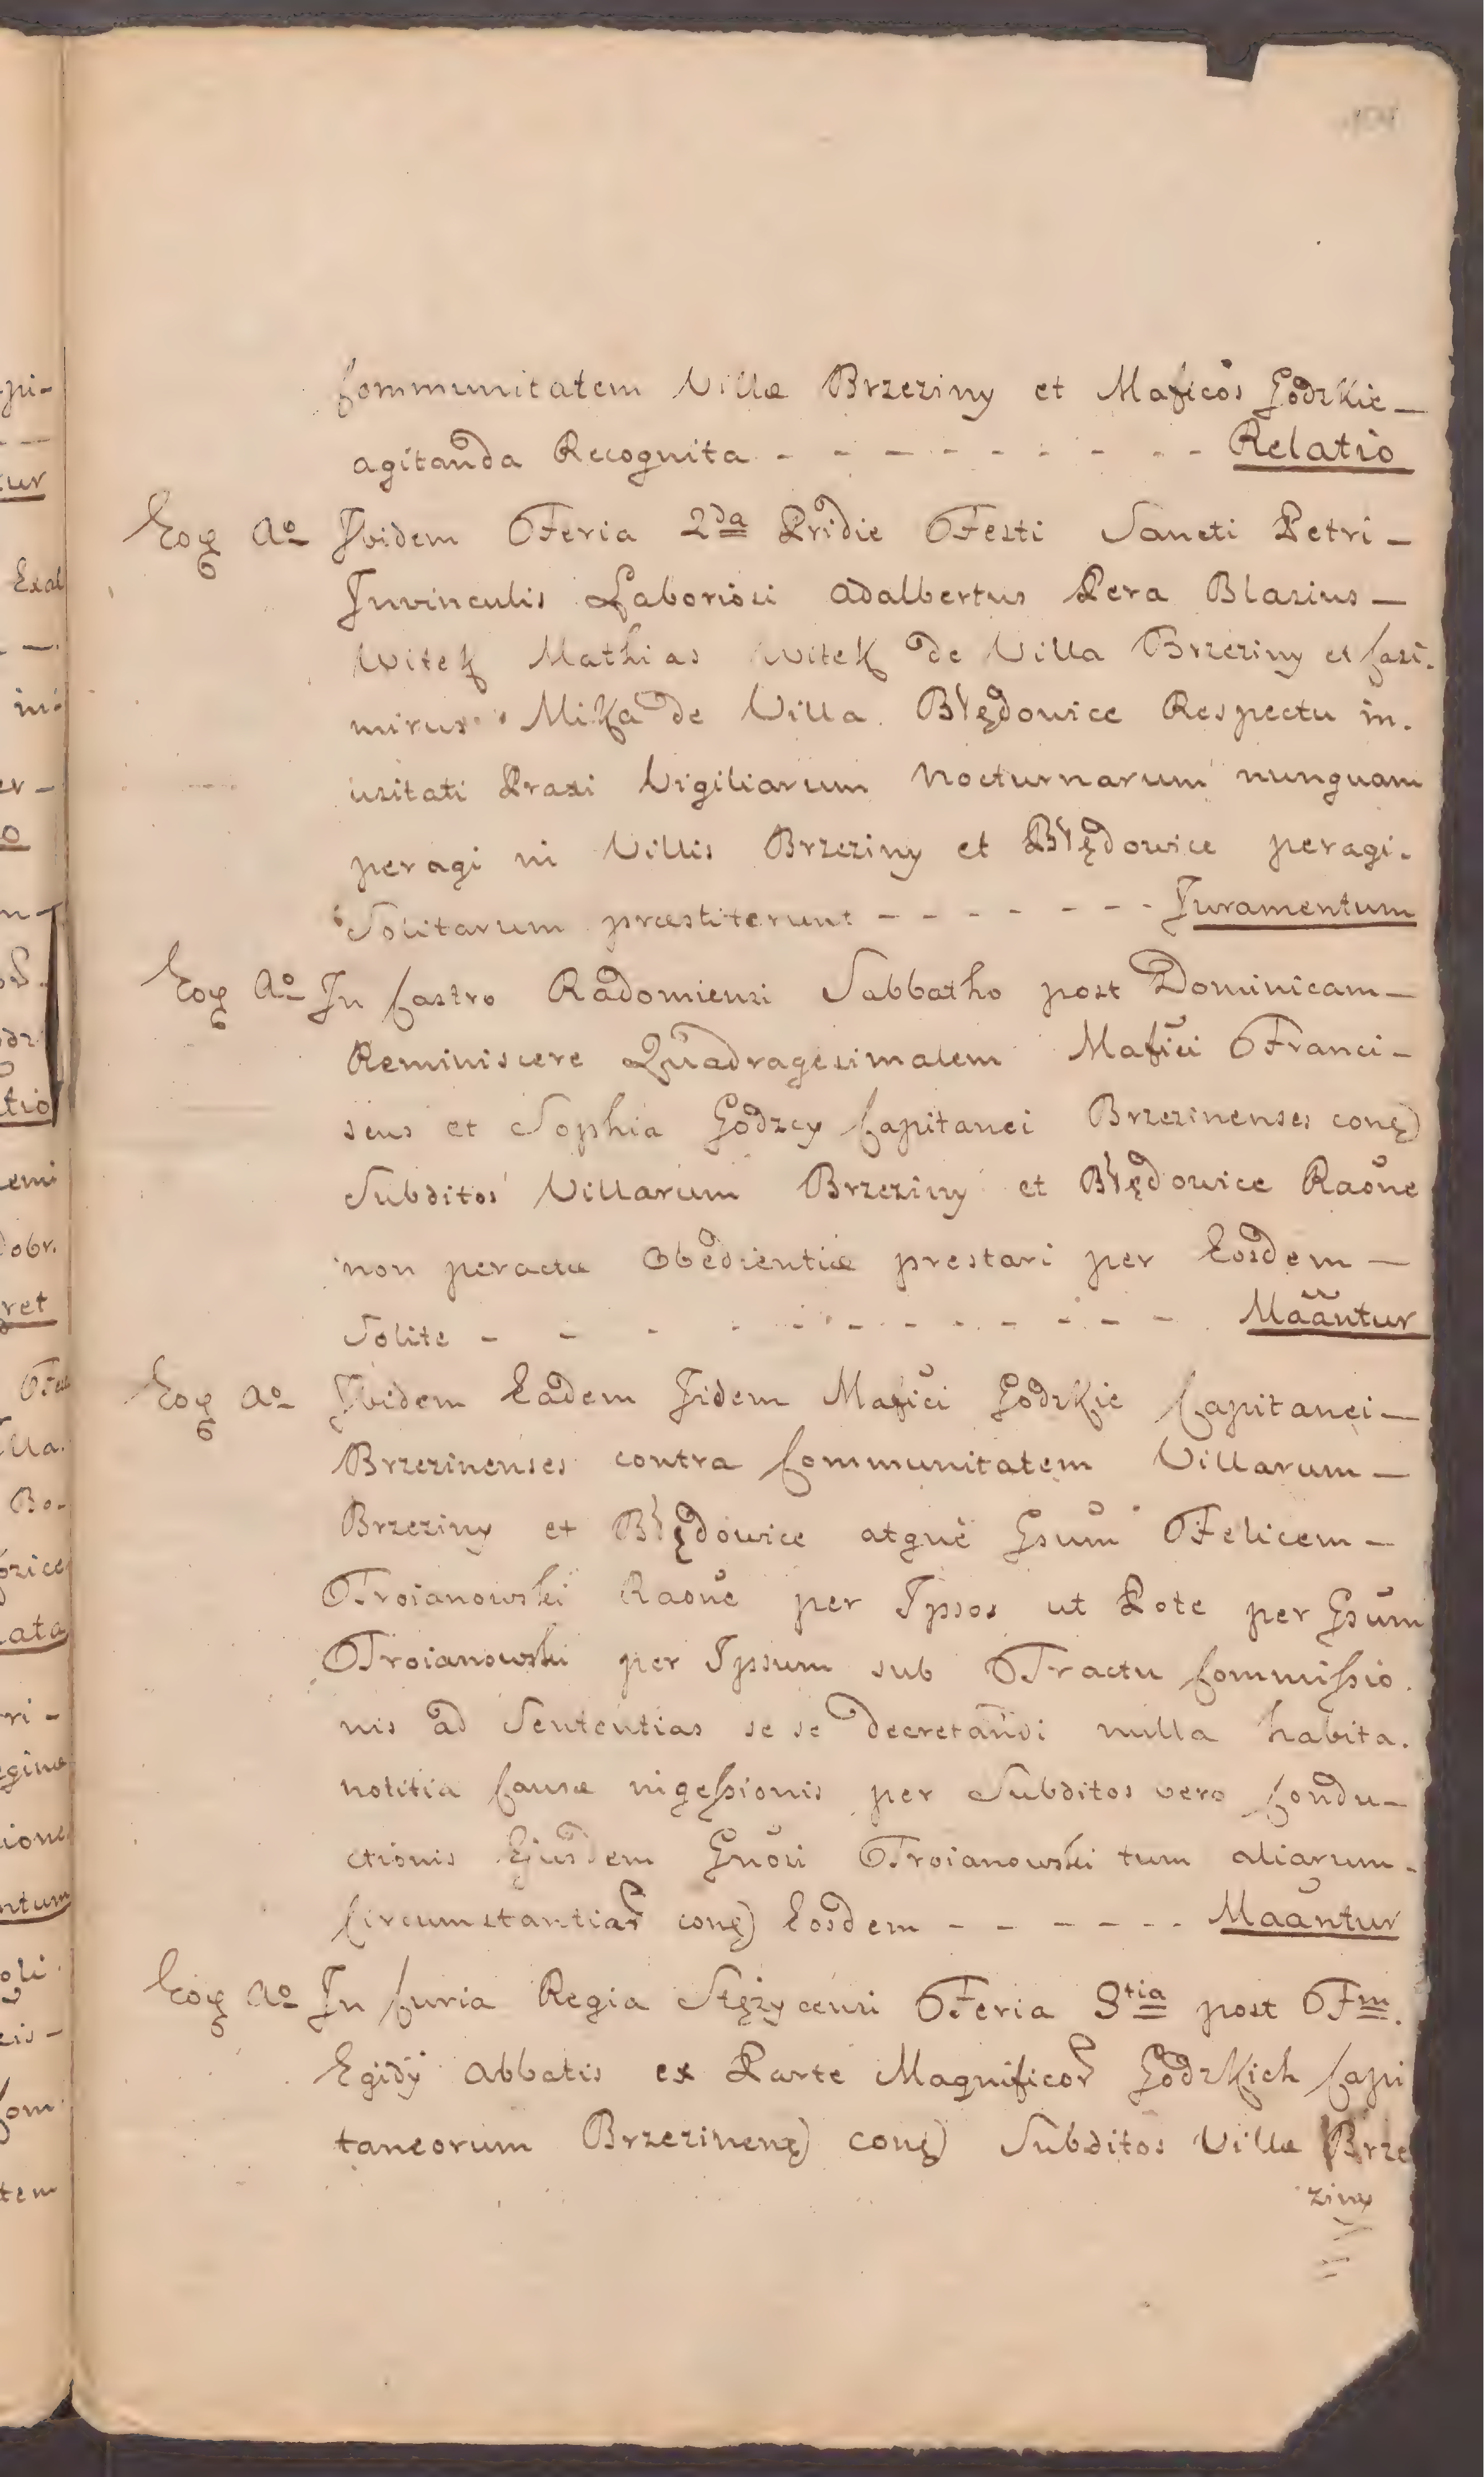 Communitatem Villæ Brzeziny et Mafic̃os Godzkie –
agitanda Recognita - - - - - - - - - - Relatio
Eoq Aº Ibidem Feria 2da Pridie Festi Sancti Petri –
Invinculis Laboriosi Adalbertus Pera Blasius –
Witek Mathias Witek de Villa Brzeziny et Casi-
mirus Mika de Villa Błędowice Respectu in-
usitati Praxi Vigiliarum Nocturnarum nunquam
peragi in Villis Brzeziny et Błędowice peragi-
Solitarum præstiterunt - - - - - - - Juramentum
Eoq Aº In Castro Radomiensi Sabbatho post Dominicam –
Reminiscere Quadragesimalem Mafići Franci –
scus et Sophia Godzcy Capitanei Brzezinenses conq)
Subditos Villarum Brzeziny et Błędowice Raõne
non peractæ Obedientiæ prestari per Eosdem –
Solite - - - - - - - - - - - - Maãntur
Eoq Aº Ibidem Eadem Iidem Mafići Godzkie Capitanei –
Brzezinenses contra Communitatem Villarum –
Brzeziny et Błędowice atque Gsum Felicem –
Troianowski Raõne per Ipsos ut Pote per Gsum
Troianowski per Ipsum sub Tractu Commissio-
nis ad Sententias se se decretandi nulla habita-
notitia Causæ ingessionis per Subditos vero Condu –
ctionis Ejusdem Gnõsi Troianowski tum aliarum -
Circumstantiar conq) Eosdem - - - - - - Maãntur
Eoq Aº In Curia Regia Stężycensi Feria 3tia post Fm.
Egidÿ Abbatis ex Parte Magnificor Godzkich Capi
taneorum Brzezinenq) conq) Subditos Villæ Brze
ziny